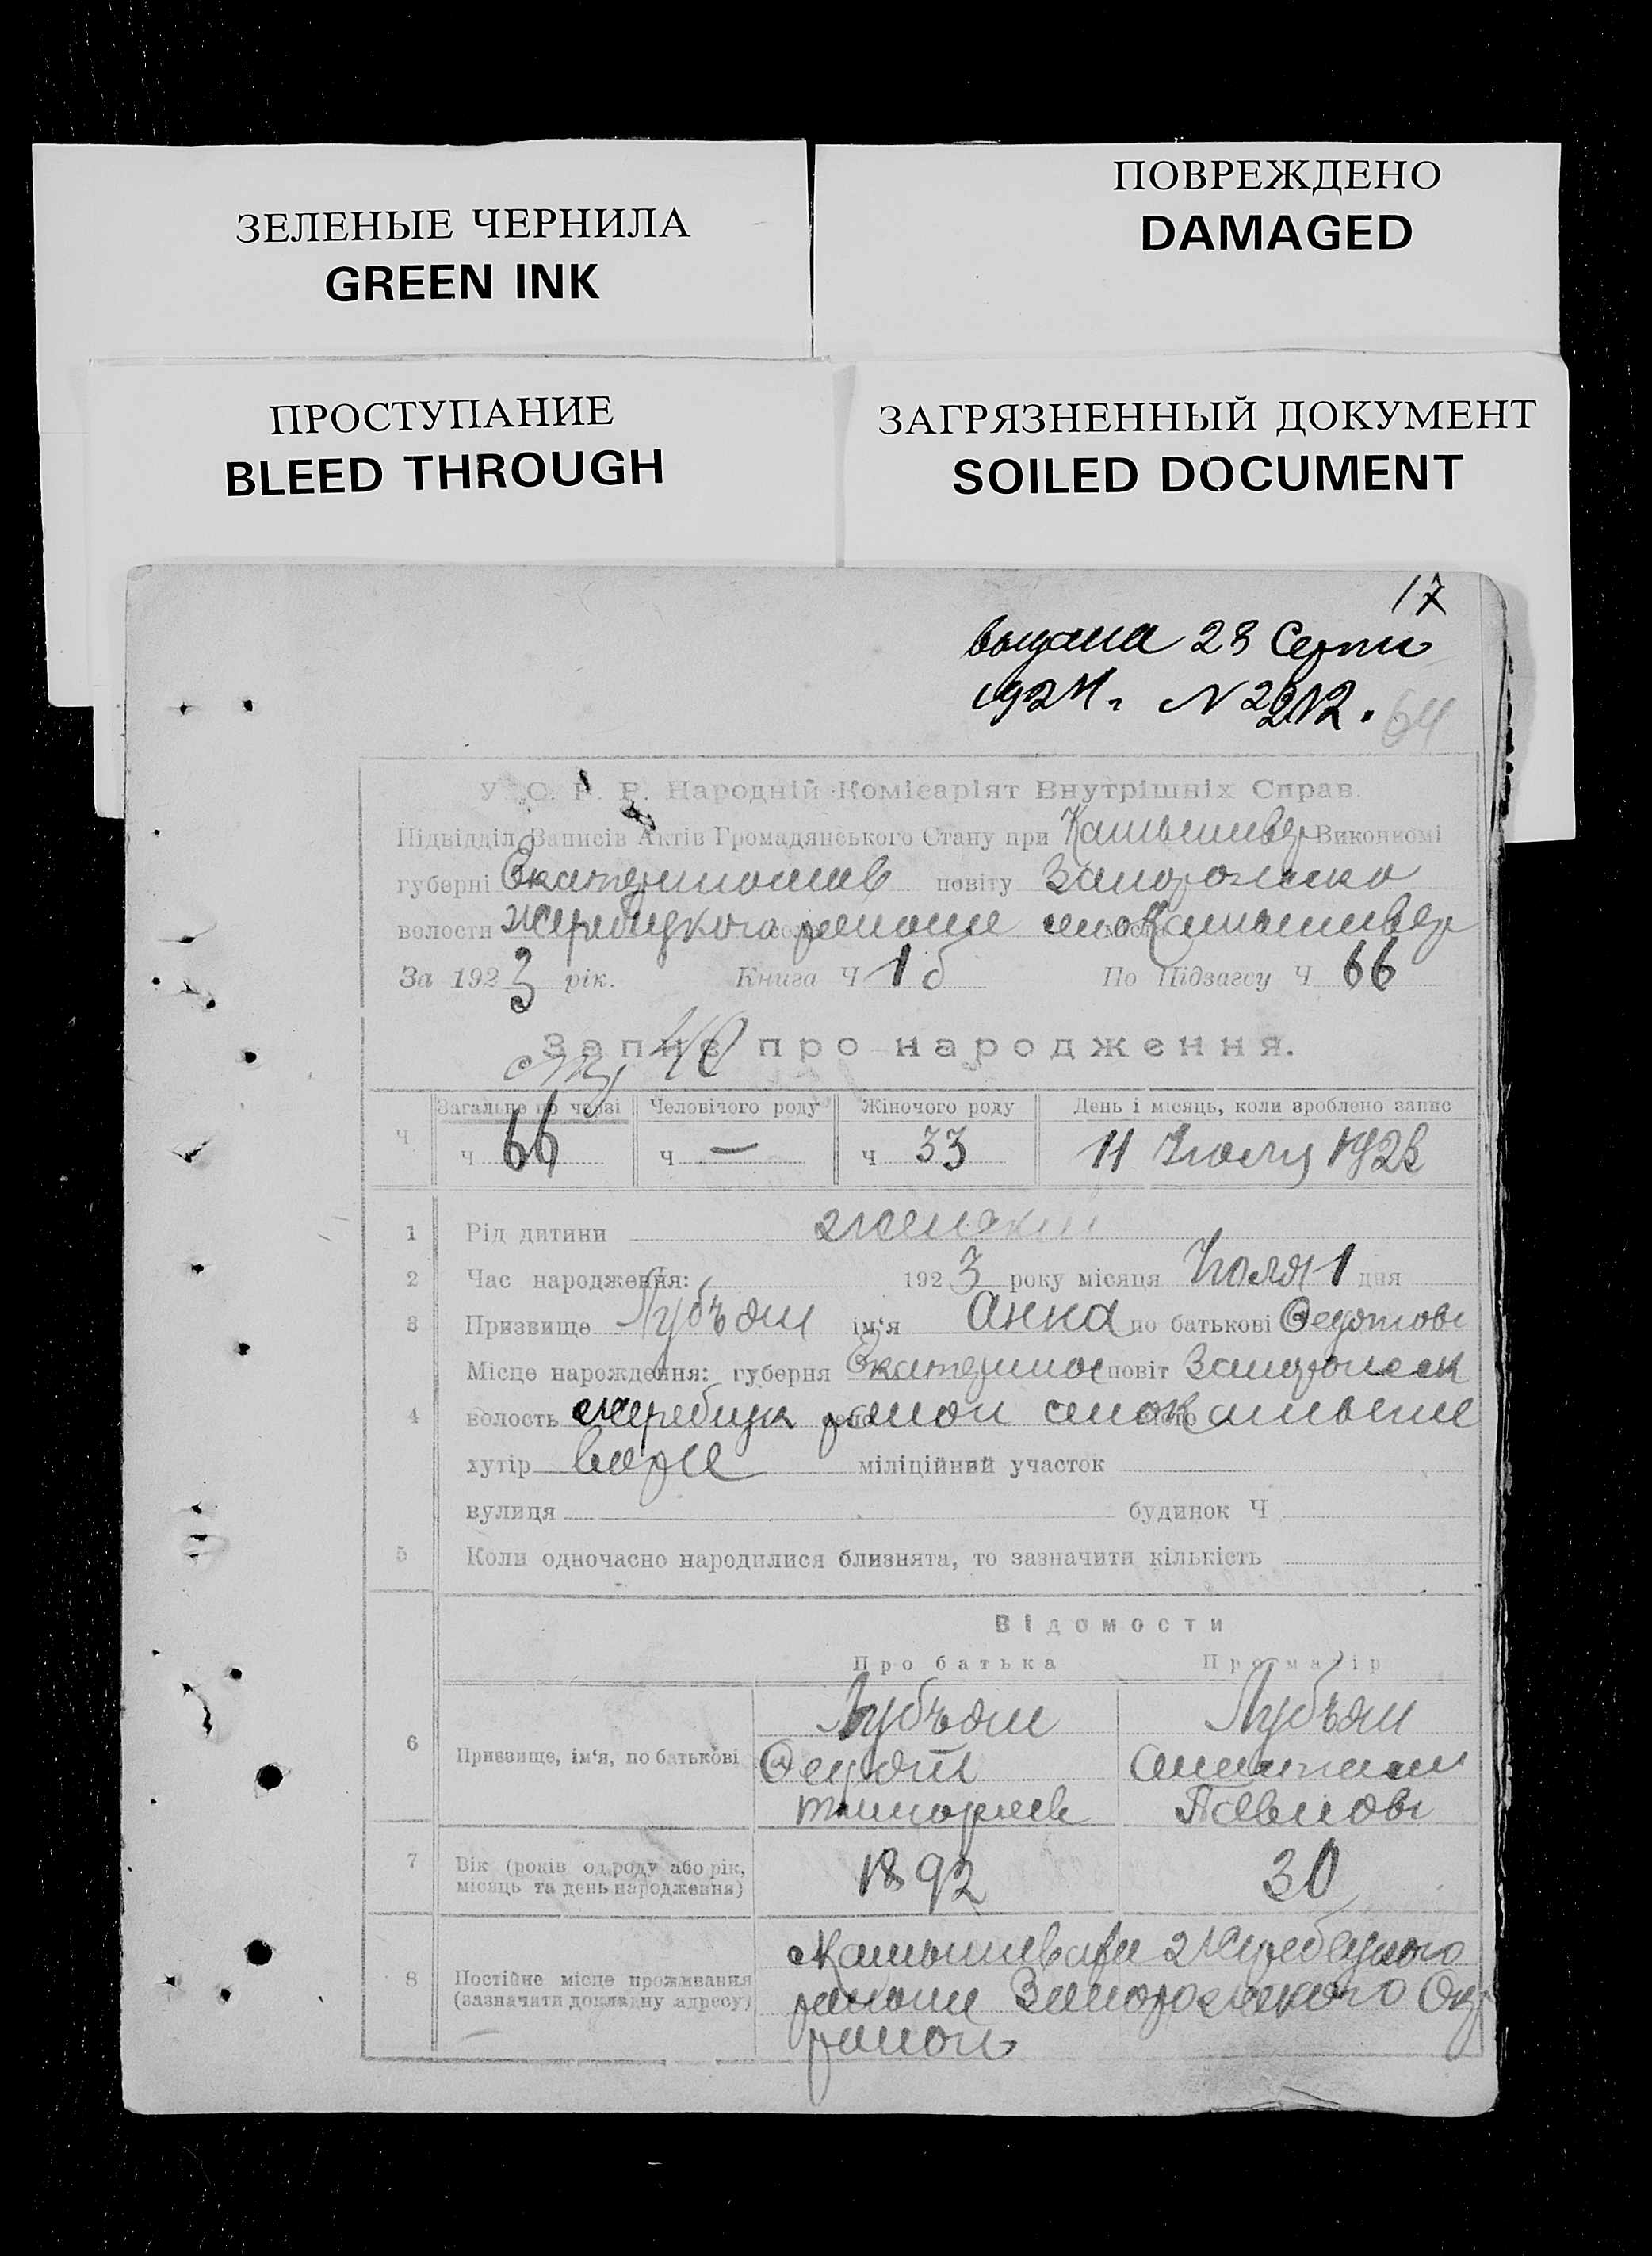 ЗЕЛЕНЫЕ ЧЕРНИЛА
GREEN INK
ПОВРЕЖДЕНО
DAMAGED
ПРОСТУПАНИЕ
BLEED THROUGH
ЗАГРЯЗНЕННЫЙ ДОКУМЕНТ
SOILED DOCUMENT
17
28
N 2212.
64
У. С. Р. Р. Народній Комісаріят Внутрішніх Справ.
Підвідділ Записів Актів Громадянського Стану при Камышевар Виконкомі
губерні Екатеринослав повіту Запорожско
волости Жеребецкого района село Камышевар
За 1923 рік. Книга Ч 1б По Підзагсу Ч 66
Запис про народження.
Загальне по черзі Человічого роду Жіночого роду День і місяць, коли зроблено запис
Ч ч 66 ч — ч 33 11 Июля 1923
1 Рід дитини женский
2 Час народження: 1923 року місяця Июля 1 дня
3 Призвище Лубъян ім'я Анна по батькові Федотов
Місце народження: губерня Екатеринос повіт Запорожск
4 волость Жеребецк район село Камыше
хутір варе міліційний участок
вулиця будинок Ч
5 Коли одночасно народилися близнята, то зазначити кількість
Відомости
Про батька Про матір
Лубъян Лубъян
6 Призвище, ім'я, по батькові Федот
7 Вік (років од роду або рік, місяць та день народження) 1892 30
Камышевахи Жеребецкого
8 Постійне місце проживання района Запорожского Окр
(зазначити докладну адресу)
район